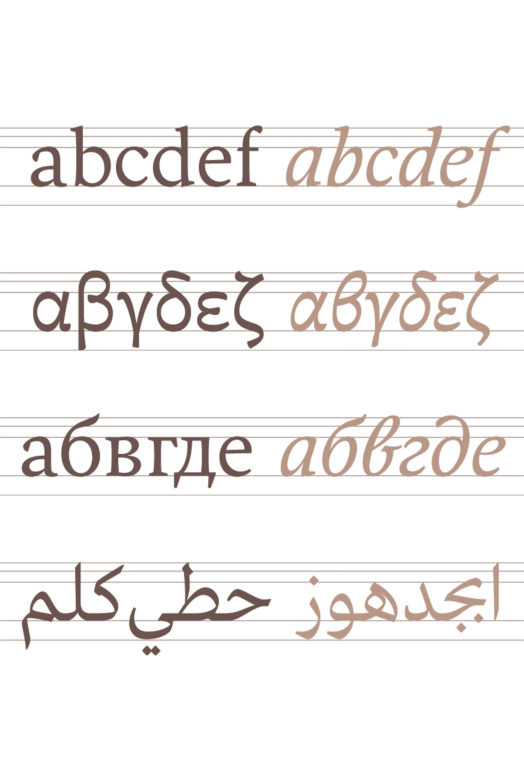 abcdef abcdef
αβγδεζ αβγδεζ
абвгде абвгде
ابجدهوز حطي كلم